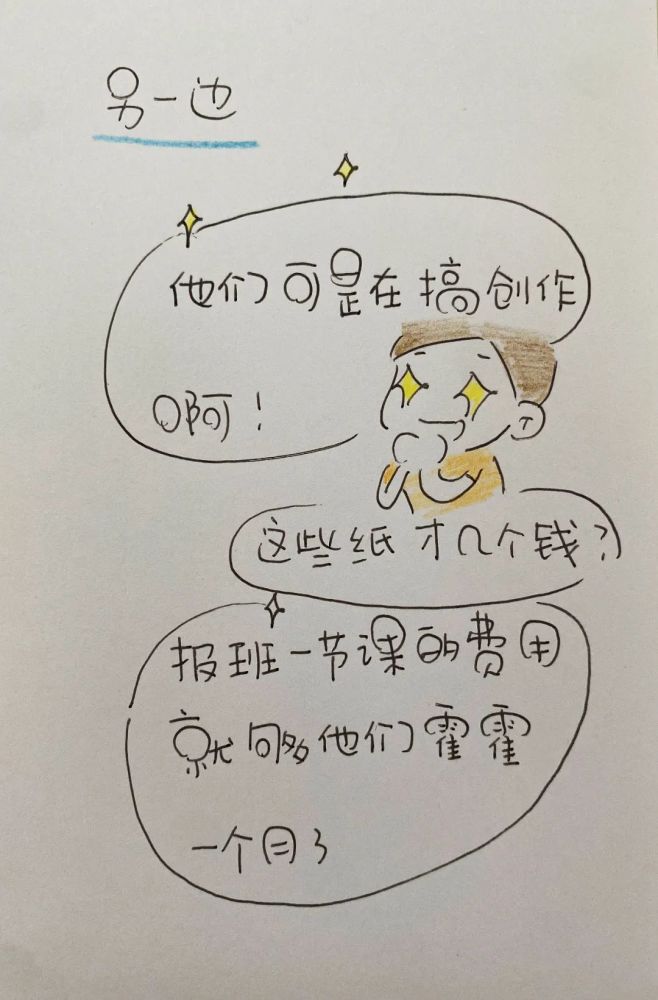 另一边
他们可是在搞创作
啊！
这些纸才几个钱？
报班一节课的费用
就够他们霍霍
一个月了